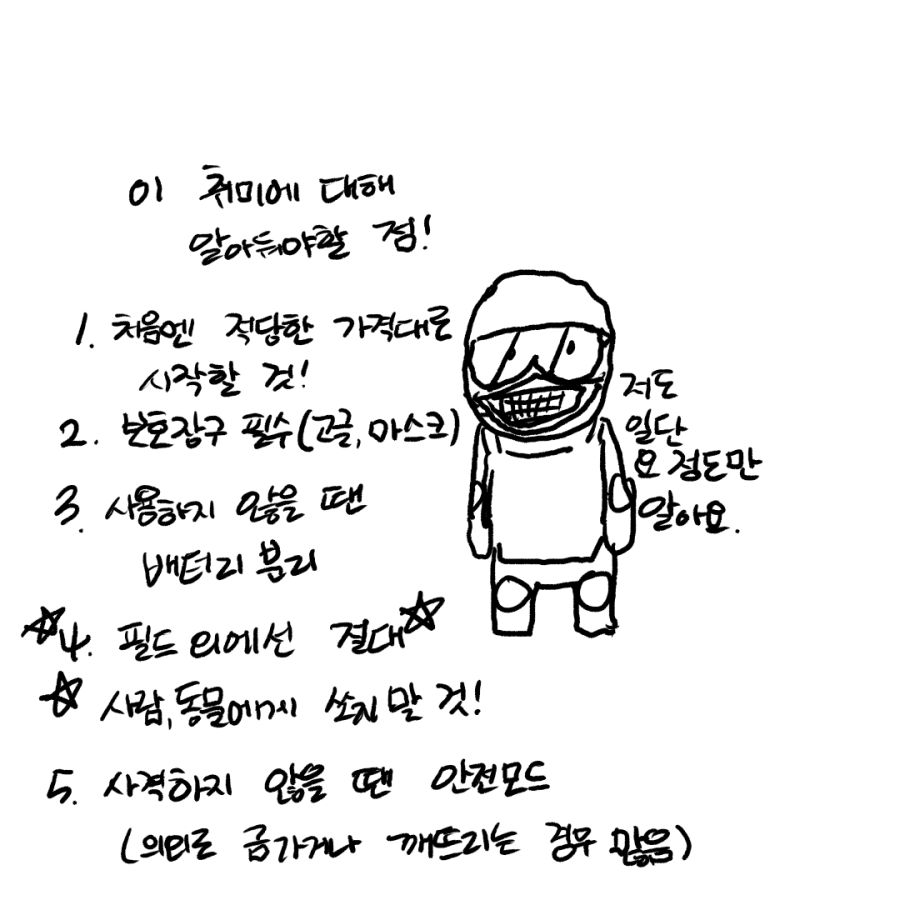 이 취미에 대해
알아둬야할 점!
1. 처음엔 적당한 가격대로
시작할 것!
2. 보호장구 필수(고글,마스크)
3. 사용하지 않을 땐
배터리 분리
☆4. 필드 외에선 절대☆
☆ 사람,동물에게 쏘지말 것!
5. 사격하지 않을 땐 안전모드
(의외로 금가거나 깨뜨리는 경우 많음)
저도
일단
요 정도만
알아요.